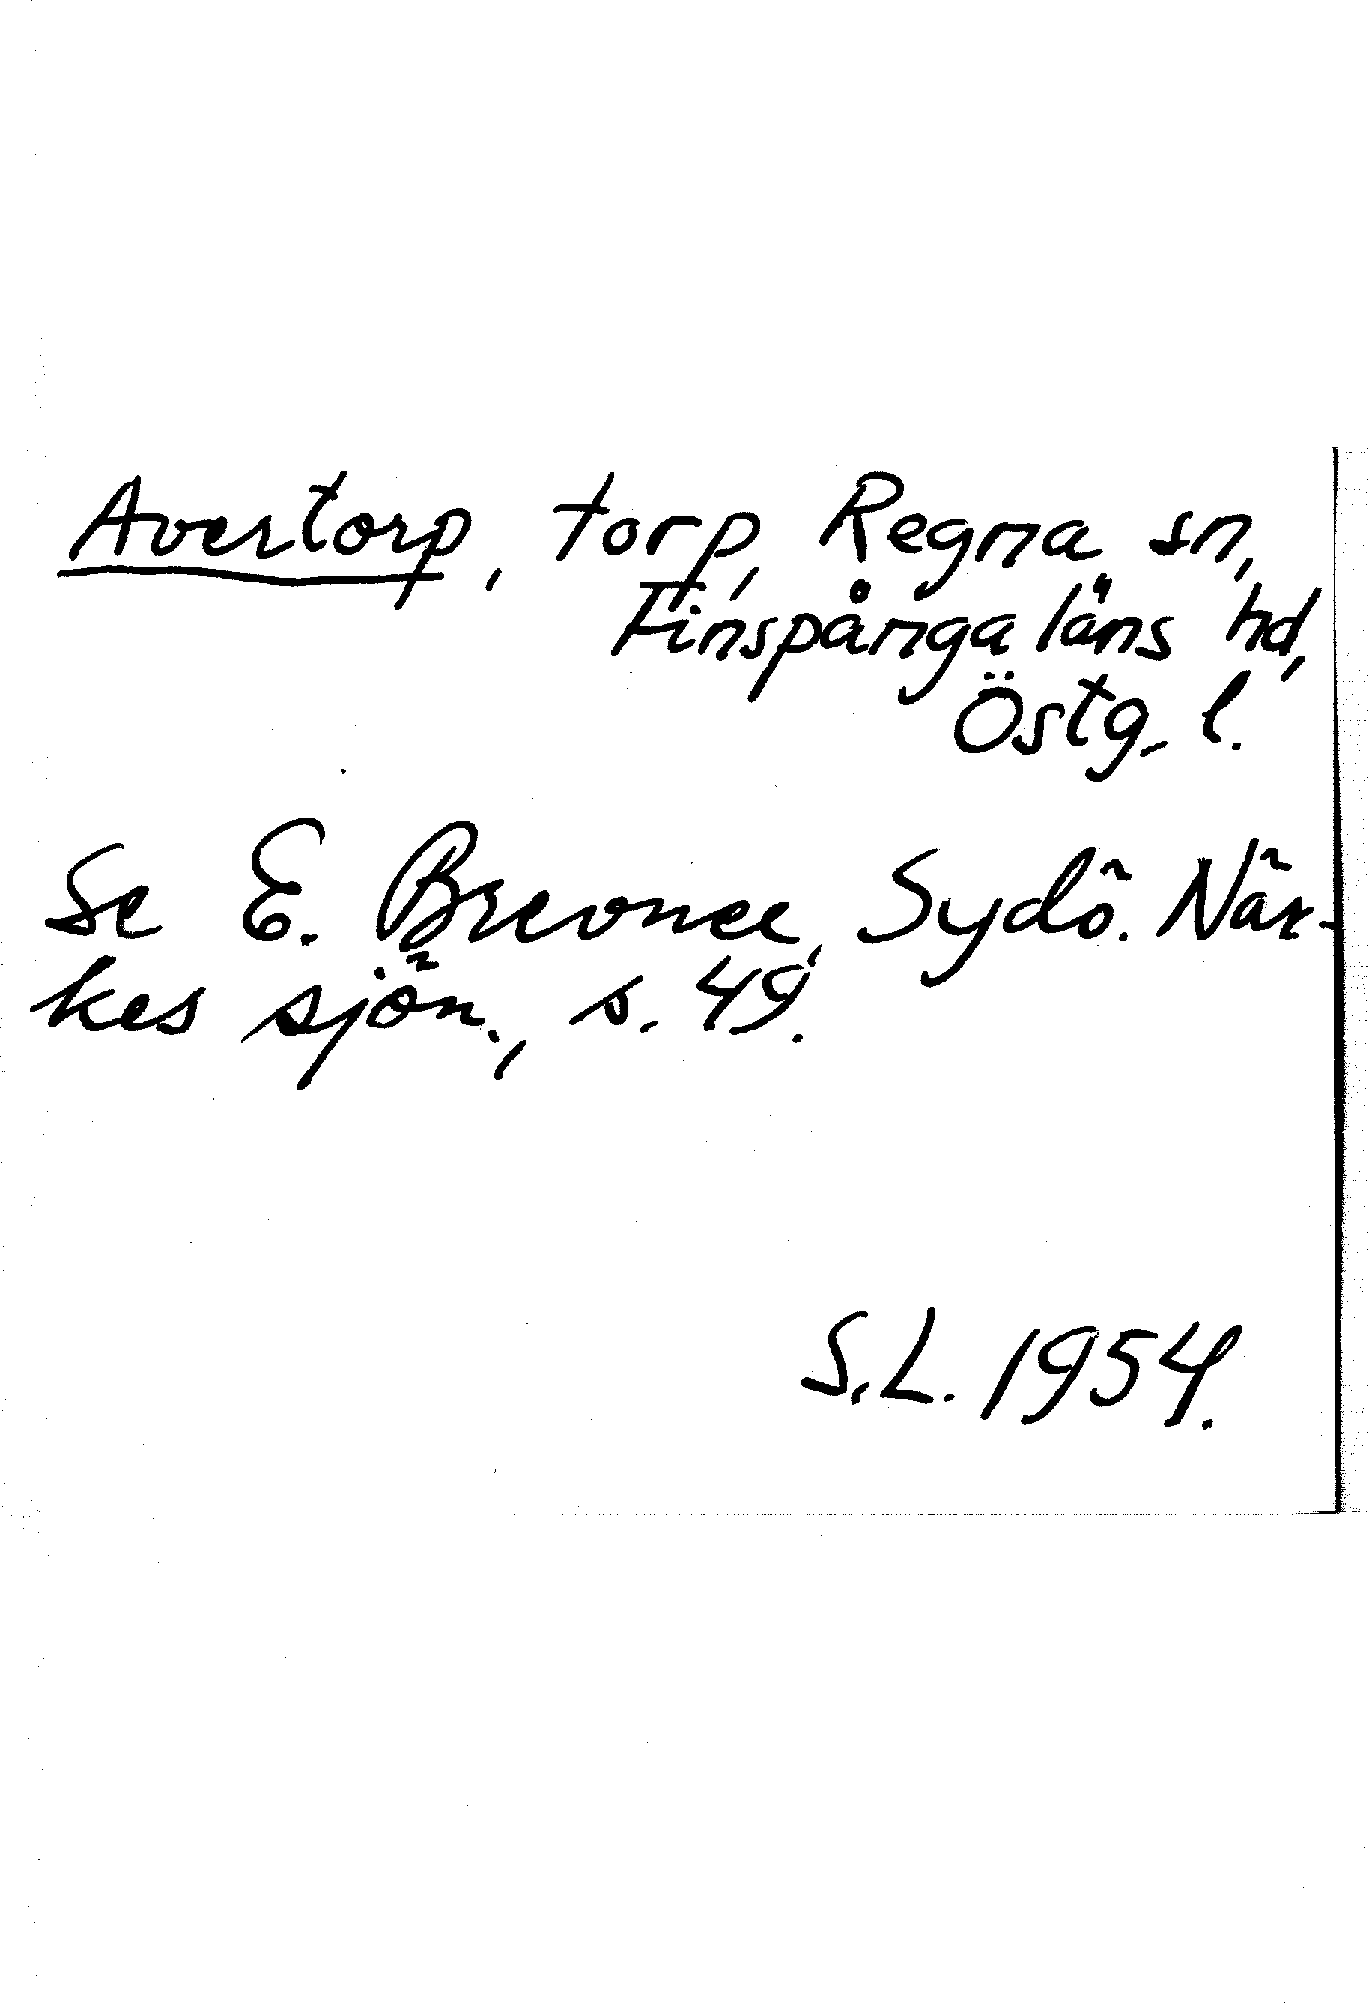 Avertorp, torp, Regna sn,
Finspånga läns hd,
Östg. l.
Se E. Brevner, Sydö. När-
kes sjön., s. 49.
S.L. 1954.